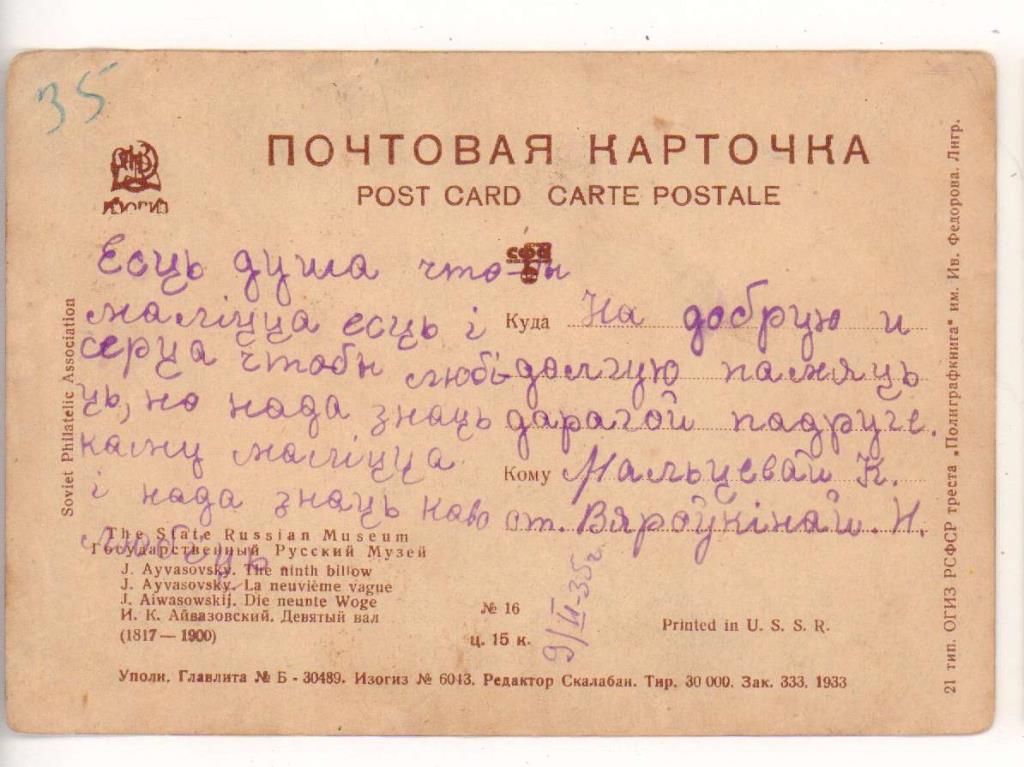 35
ПОЧТОВАЯ КАРТОЧКА
POST CARD CARTE POSTALE
ИЗОГИЗ
Есць душа что-бы
маліцца есць і
серца чтобы любі-
ць, но нада знаць
каму маліцца
і нада знаць каво
любець.
Куда На добрую и
долгую памяць
дарагой падруге.
Кому Мальцевай К.
ст. Вяроўкінай. Н.
9/II-35г.
The State Russian Museum
Государственный Русский Музей
J. Ayvasovsky. The ninth billow
J. Ayvasovsky. La neuvième vague
J. Aiwasowskij. Die neunte Woge
И. К. Айвазовский. Девятый вал
(1817—1900)
№ 16
ц. 15 к.
Printed in U. S. S. R.
Уполн. Главлита № Б - 30489. Изогиз № 6043. Редактор Скалабан. Тир. 30 000. Зак. 333. 1933
Soviet Philatelic Association
21 тип. ОГИЗ РСФСР треста „Полиграфкнига" им. Ив. Федорова. Лнгр.